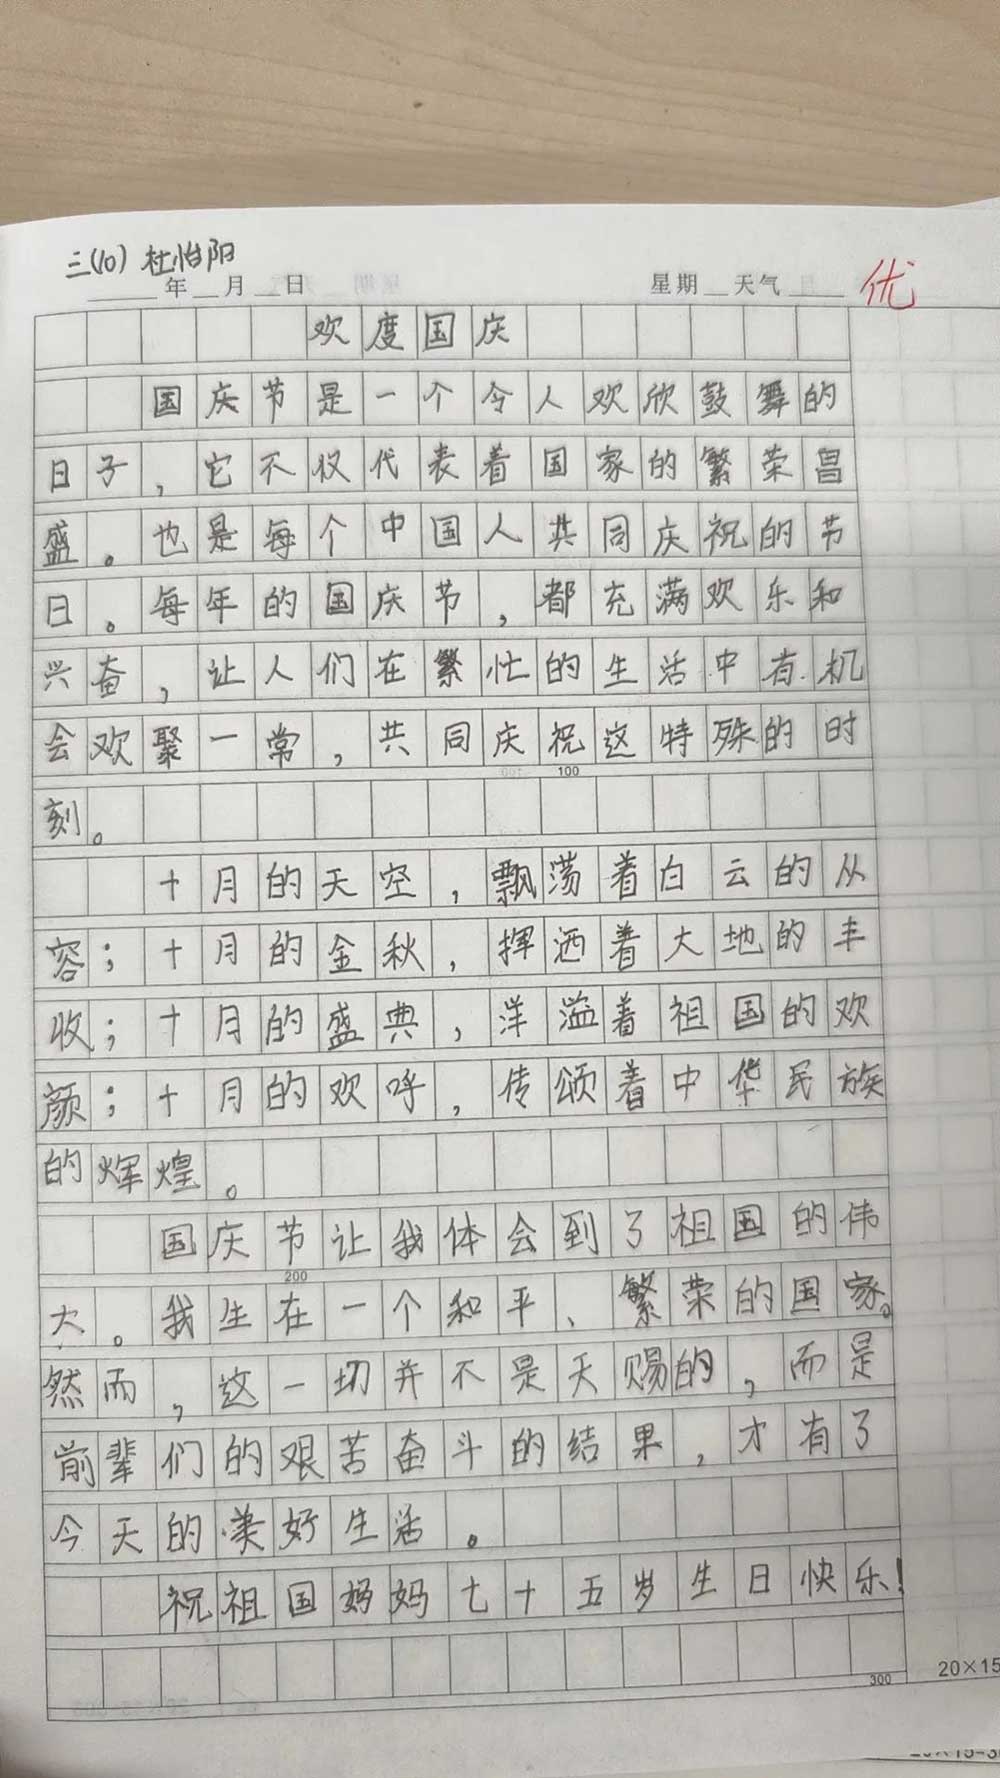 三(10) 杜怡阳
年 月 日 星期 天气 优
欢度国庆
国庆节是一个令人欢欣鼓舞的
日子，它不仅代表着国家的繁荣昌
盛。也是每个中国人共同庆祝的节
日。每年的国庆节，都充满欢乐和
兴奋，让人们在繁忙的生活中有机
会欢聚一常，共同庆祝这特殊的时
100
刻。
十月的天空，飘荡着白云的从
容；十月的金秋，挥洒着大地的丰
收；十月的盛典，洋溢着祖国的欢
颜；十月的欢呼，传颂着中华民族
的辉煌。
国庆节让我体会到了祖国的伟
200
大。我生在一个和平、繁荣的国家。
然而，这一切并不是天赐的，而是
前辈们的艰苦奋斗的结果，才有了
今天的美好生活。
祝祖国妈妈七十五岁生日快乐！
300
20×15